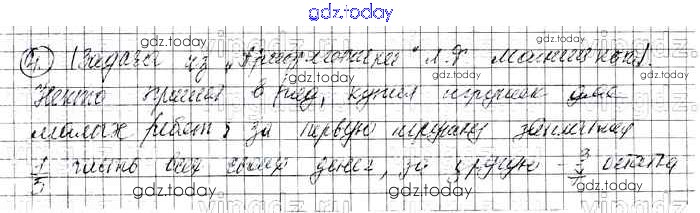 gdz.today
4. (Задача из „Арифметики" Л.Ф. Магницкого).
gdz.today gdz.today gdz.today
Некто пришел в ряд, купил игрушек для
gdz.today gdz.today
малых ребят: за первую игрушку заплатил
gdz.today gdz.today gdz.today
1/5 часть всех своих денег, за другую - 3/7 остатка
gdz.today gdz.today